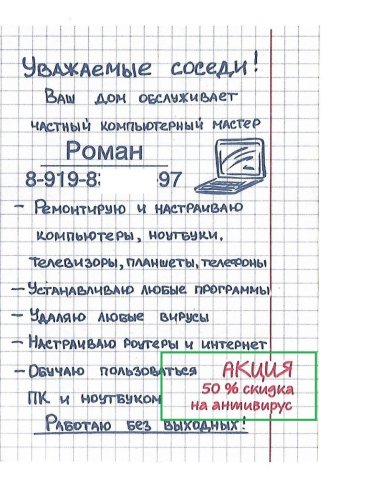 Уважаемые соседи!
Ваш дом обслуживает
частный компьютерный мастер
Роман
8-919-8 97
- Ремонтирую и настраиваю
компьютеры, ноутбуки,
телевизоры, планшеты, телефоны
- Устанавливаю любые программы
- Удаляю любые вирусы
- Настраиваю роутеры и интернет
- Обучаю пользоваться
ПК и ноутбуком
АКЦИЯ
50 % скидка
на антивирус
Работаю без выходных!